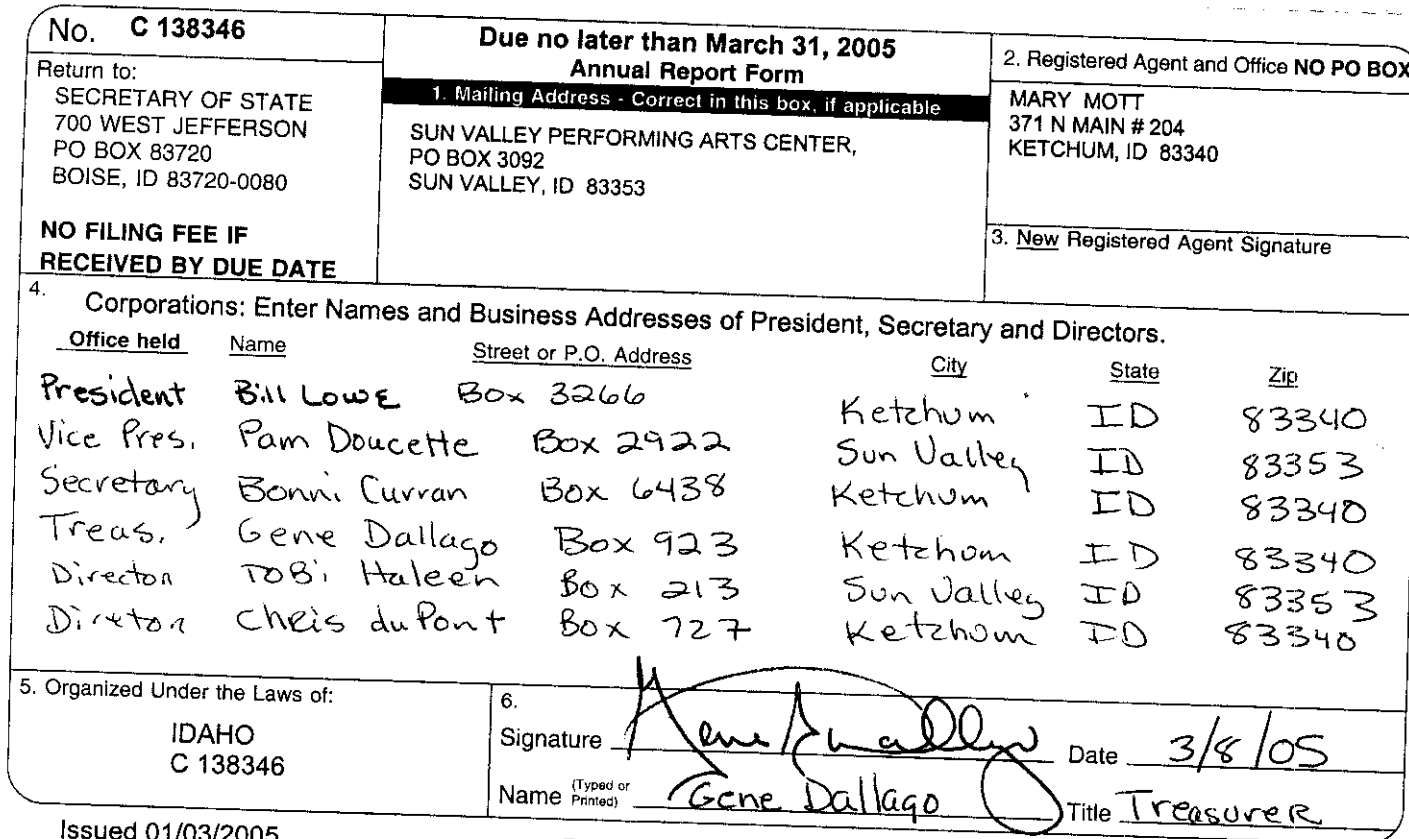 No. C 138346
Return to:
SECRETARY OF STATE
700 WEST JEFFERSON
PO BOX 83720
BOISE, ID 83720-0080
NO FILING FEE IF
RECEIVED BY DUE DATE
Due no later than March 31, 2005
Annual Report Form
1. Mailing Address - Correct in this box, if applicable
SUN VALLEY PERFORMING ARTS CENTER,
PO BOX 3092
SUN VALLEY, ID 83353
2. Registered Agent and Office NO PO BOX
MARY MOTT
371 N MAIN # 204
KETCHUM, ID 83340
3. New Registered Agent Signature
4. Corporations: Enter Names and Business Addresses of President, Secretary and Directors.
Office held Name Street or P.O. Address City State Zip
President Bill Lowe Box 3266 Ketchum ID 83340
Vice Pres. Pam Doucette Box 2922 Sun Valley ID 83353
Secretary Bonni Curran Box 6438 Ketchum ID 83340
Treas. Gene Dallago Box 923 Ketchum ID 83340
Director TOBi Haleen Box 213 Sun Valley ID 83353
Director Chris duPont Box 727 Ketchum ID 83340
5. Organized Under the Laws of:
IDAHO
C 138346
6.
Signature Date 3/8/05
Name (Typed or Printed) Gene Dallago Title Treasurer
Issued 01/03/2005